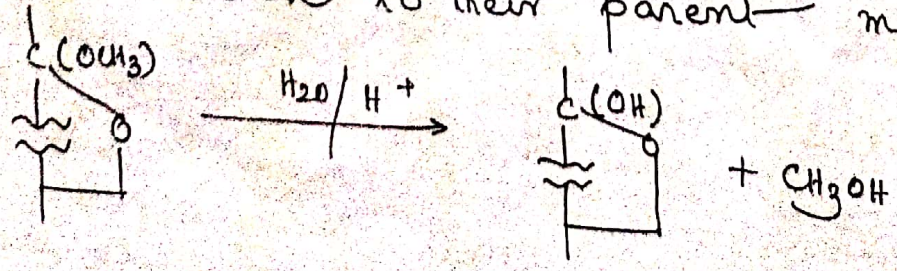 to their parent m
C(OCH3) H2O/H+ C(OH)
O O + CH3OH